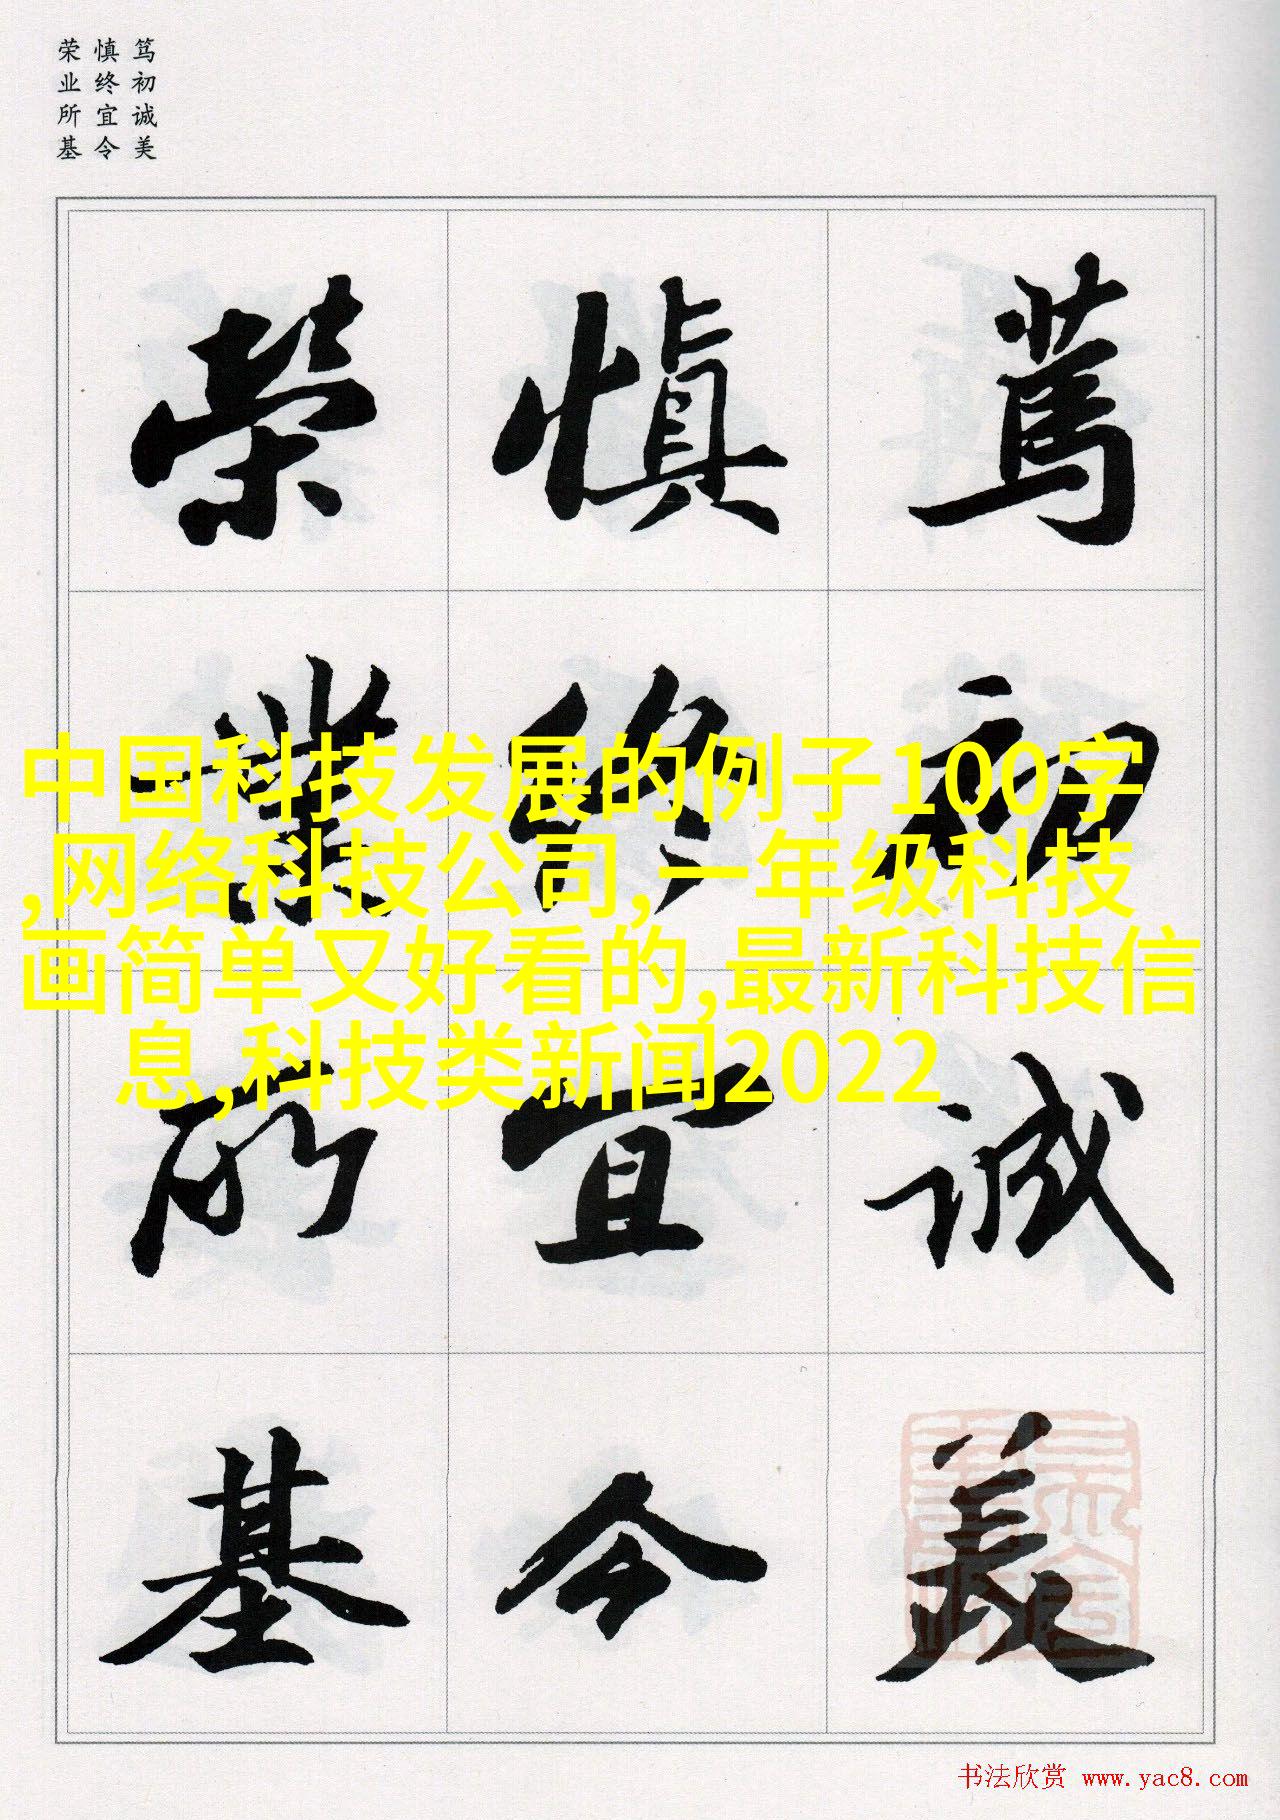 笃初诚美
慎终宜令
荣业所基
篤初诚美
慎终宜令
榮業所基
中国科技发展的例子100字
,网络科技公司,一年级科技
画简单又好看的,最新科技信
息,科技类新闻2022
书法欣赏 www.yac8.com